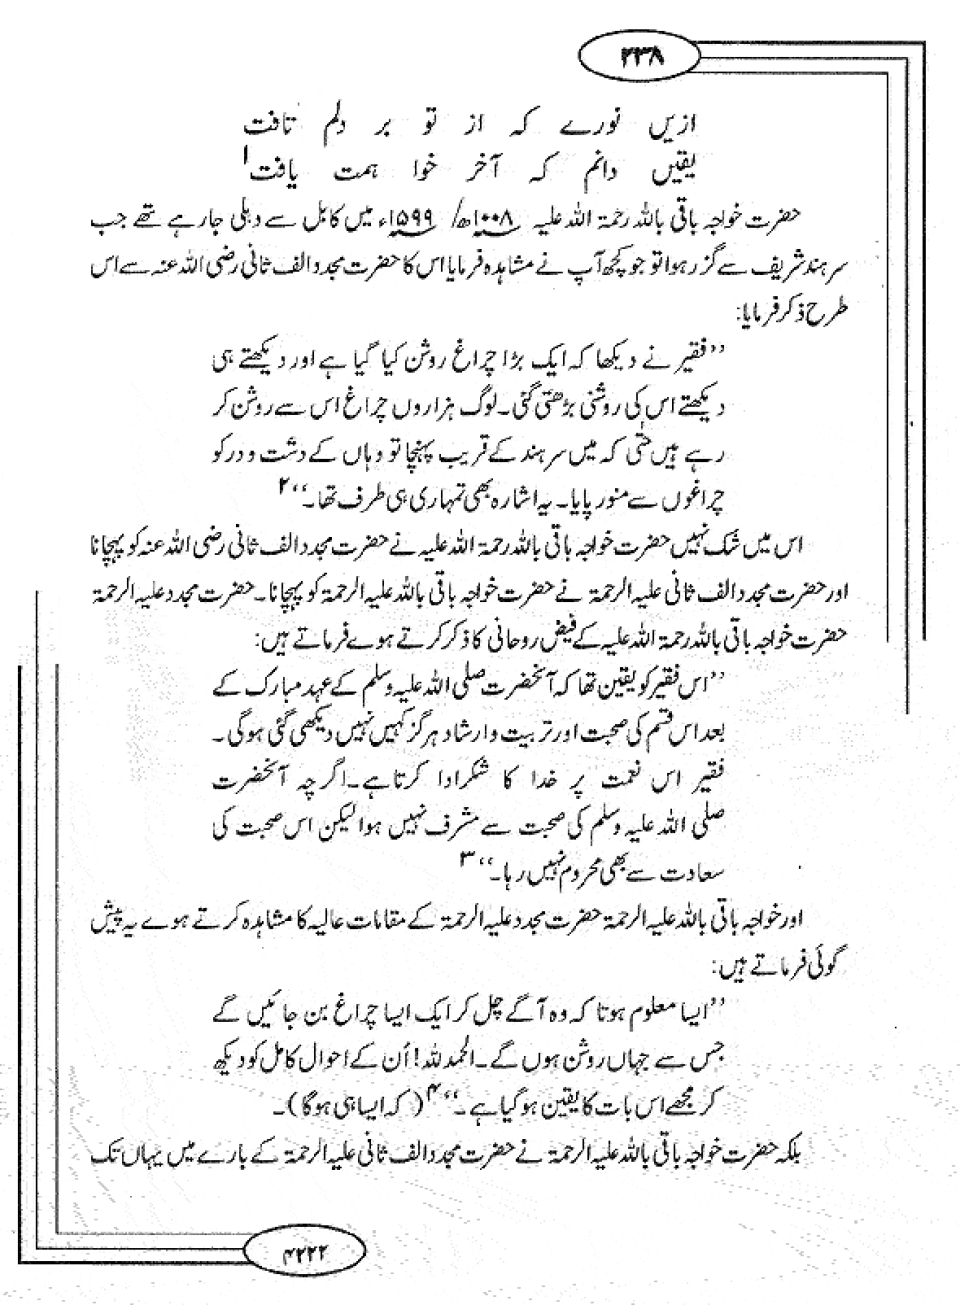 ۲۳۸
ازیں نورے کہ از تو بر دلم تافت
یقیں دانم کہ آخر خوا ہمت یافت۱
حضرت خواجہ باقی باللہ رحمۃ اللہ علیہ ۱۰۰۸ھ/ ۱۵۹۹ء میں کابل سے دہلی جارہے تھے جب
سرہند شریف سے گزر ہوا تو جو کچھ آپ نے مشاہدہ فرمایا اس کا حضرت مجدد الف ثانی رضی اللہ عنہ سے اس
طرح ذکر فرمایا:
’’فقیر نے دیکھا کہ ایک بڑا چراغ روشن کیا گیا ہے اور دیکھتے ہی
دیکھتے اس کی روشنی بڑھتی گئی۔ لوگ ہزاروں چراغ اس سے روشن کر
رہے ہیں حتٰی کہ میں سرہند کے قریب پہنچا تو وہاں کے دشت و در کو
چراغوں سے منور پایا۔ یہ اشارہ بھی تمہاری ہی طرف تھا۔‘‘۲
اس میں شک نہیں حضرت خواجہ باقی باللہ رحمۃ اللہ علیہ نے حضرت مجدد الف ثانی رضی اللہ عنہ کو پہچانا
اور حضرت مجدد الف ثانی علیہ الرحمۃ نے حضرت خواجہ باقی باللہ علیہ الرحمۃ کو پہچانا۔ حضرت مجدد علیہ الرحمۃ
حضرت خواجہ باقی باللہ رحمۃ اللہ علیہ کے فیض روحانی کا ذکر کرتے ہوے فرماتے ہیں:
’’اس فقیر کو یقین تھا کہ آنحضرت صلی اللہ علیہ وسلم کے عہد مبارک کے
بعد اس قسم کی صحبت اور تربیت و ارشاد ہرگز کہیں نہیں دیکھی گئی ہوگی۔
فقیر اس نعمت پر خدا کا شکر ادا کرتا ہے۔ اگر چہ آنحضرت
صلی اللہ علیہ وسلم کی صحبت سے مشرف نہیں ہوا لیکن اس صحبت کی
سعادت سے بھی محروم نہیں رہا۔‘‘۳
اور خواجہ باقی باللہ علیہ الرحمۃ حضرت مجدد علیہ الرحمۃ کے مقامات عالیہ کا مشاہدہ کرتے ہوے یہ پیش
گوئی فرماتے ہیں:
’’ایسا معلوم ہوتا کہ وہ آگے چل کر ایک ایسا چراغ بن جائیں گے
جس سے جہاں روشن ہوں گے۔ الحمد للہ! اُن کے احوال کامل کو دیکھ
کر مجھے اس بات کا یقین ہو گیا ہے۔‘‘۴ (کہ ایسا ہی ہوگا)۔
بلکہ حضرت خواجہ باقی باللہ علیہ الرحمۃ نے حضرت مجدد الف ثانی علیہ الرحمۃ کے بارے میں یہاں تک
۴۲۲۲